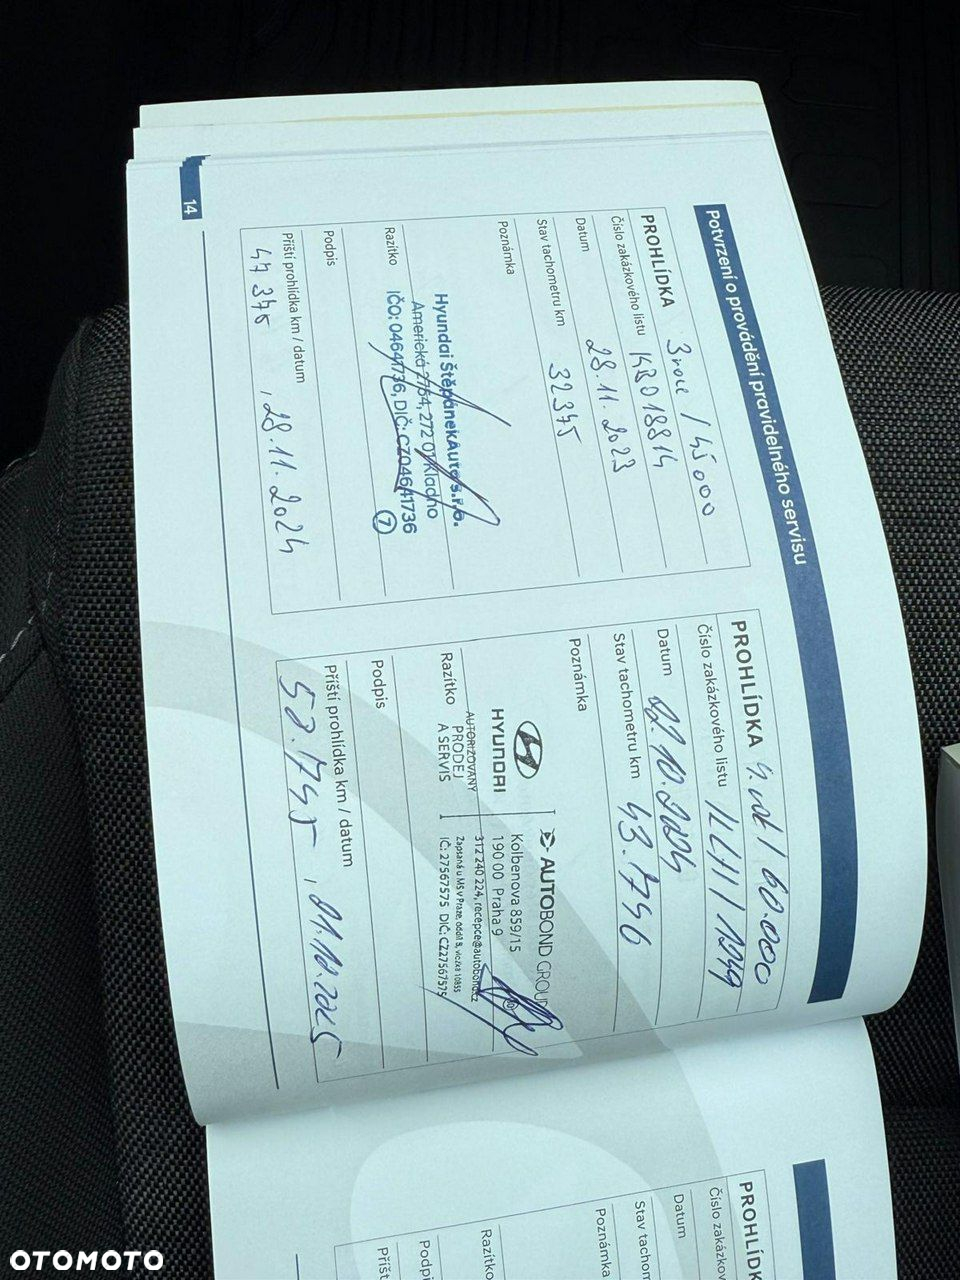 Potvrzení o provádění pravidelného servisu
PROHLÍDKA 3 roce / 45000
Číslo zakázkového listu K3018814
Datum 28.11.2023
Stav tachometru km 32375
Poznámka
Hyundai ŠtěpánekAuto s.r.o.
Americká 2764, 272 01 Kladno
Razítko IČO: 04641736, DIČ: CZ04641736
7
Podpis
Příští prohlídka km / datum
47375 , 28.11.2024
14
PROHLÍDKA 4. rok / 60.000
Číslo zakázkového listu
Datum 10.2024
Stav tachometru km 43.746
Poznámka
HYUNDAI
AUTORIZOVANÝ
PRODEJ
A SERVIS
AUTOBOND GROUP
Kolbenova 859/15
190 00 Praha 9
312 240 224, recepce@autobond.cz
Zapsaná u MS v Praze, oddíl B, vložka 10855
IČ: 27567575 DIČ: CZ27567575
Razítko
Podpis
Příští prohlídka km / datum
58.745 , 10.2025
PROHLÍDK
Číslo zakázkov
Datum
Stav tachomet
Poznámka
Razítko
Podpis
Příšt
OTOMOTO